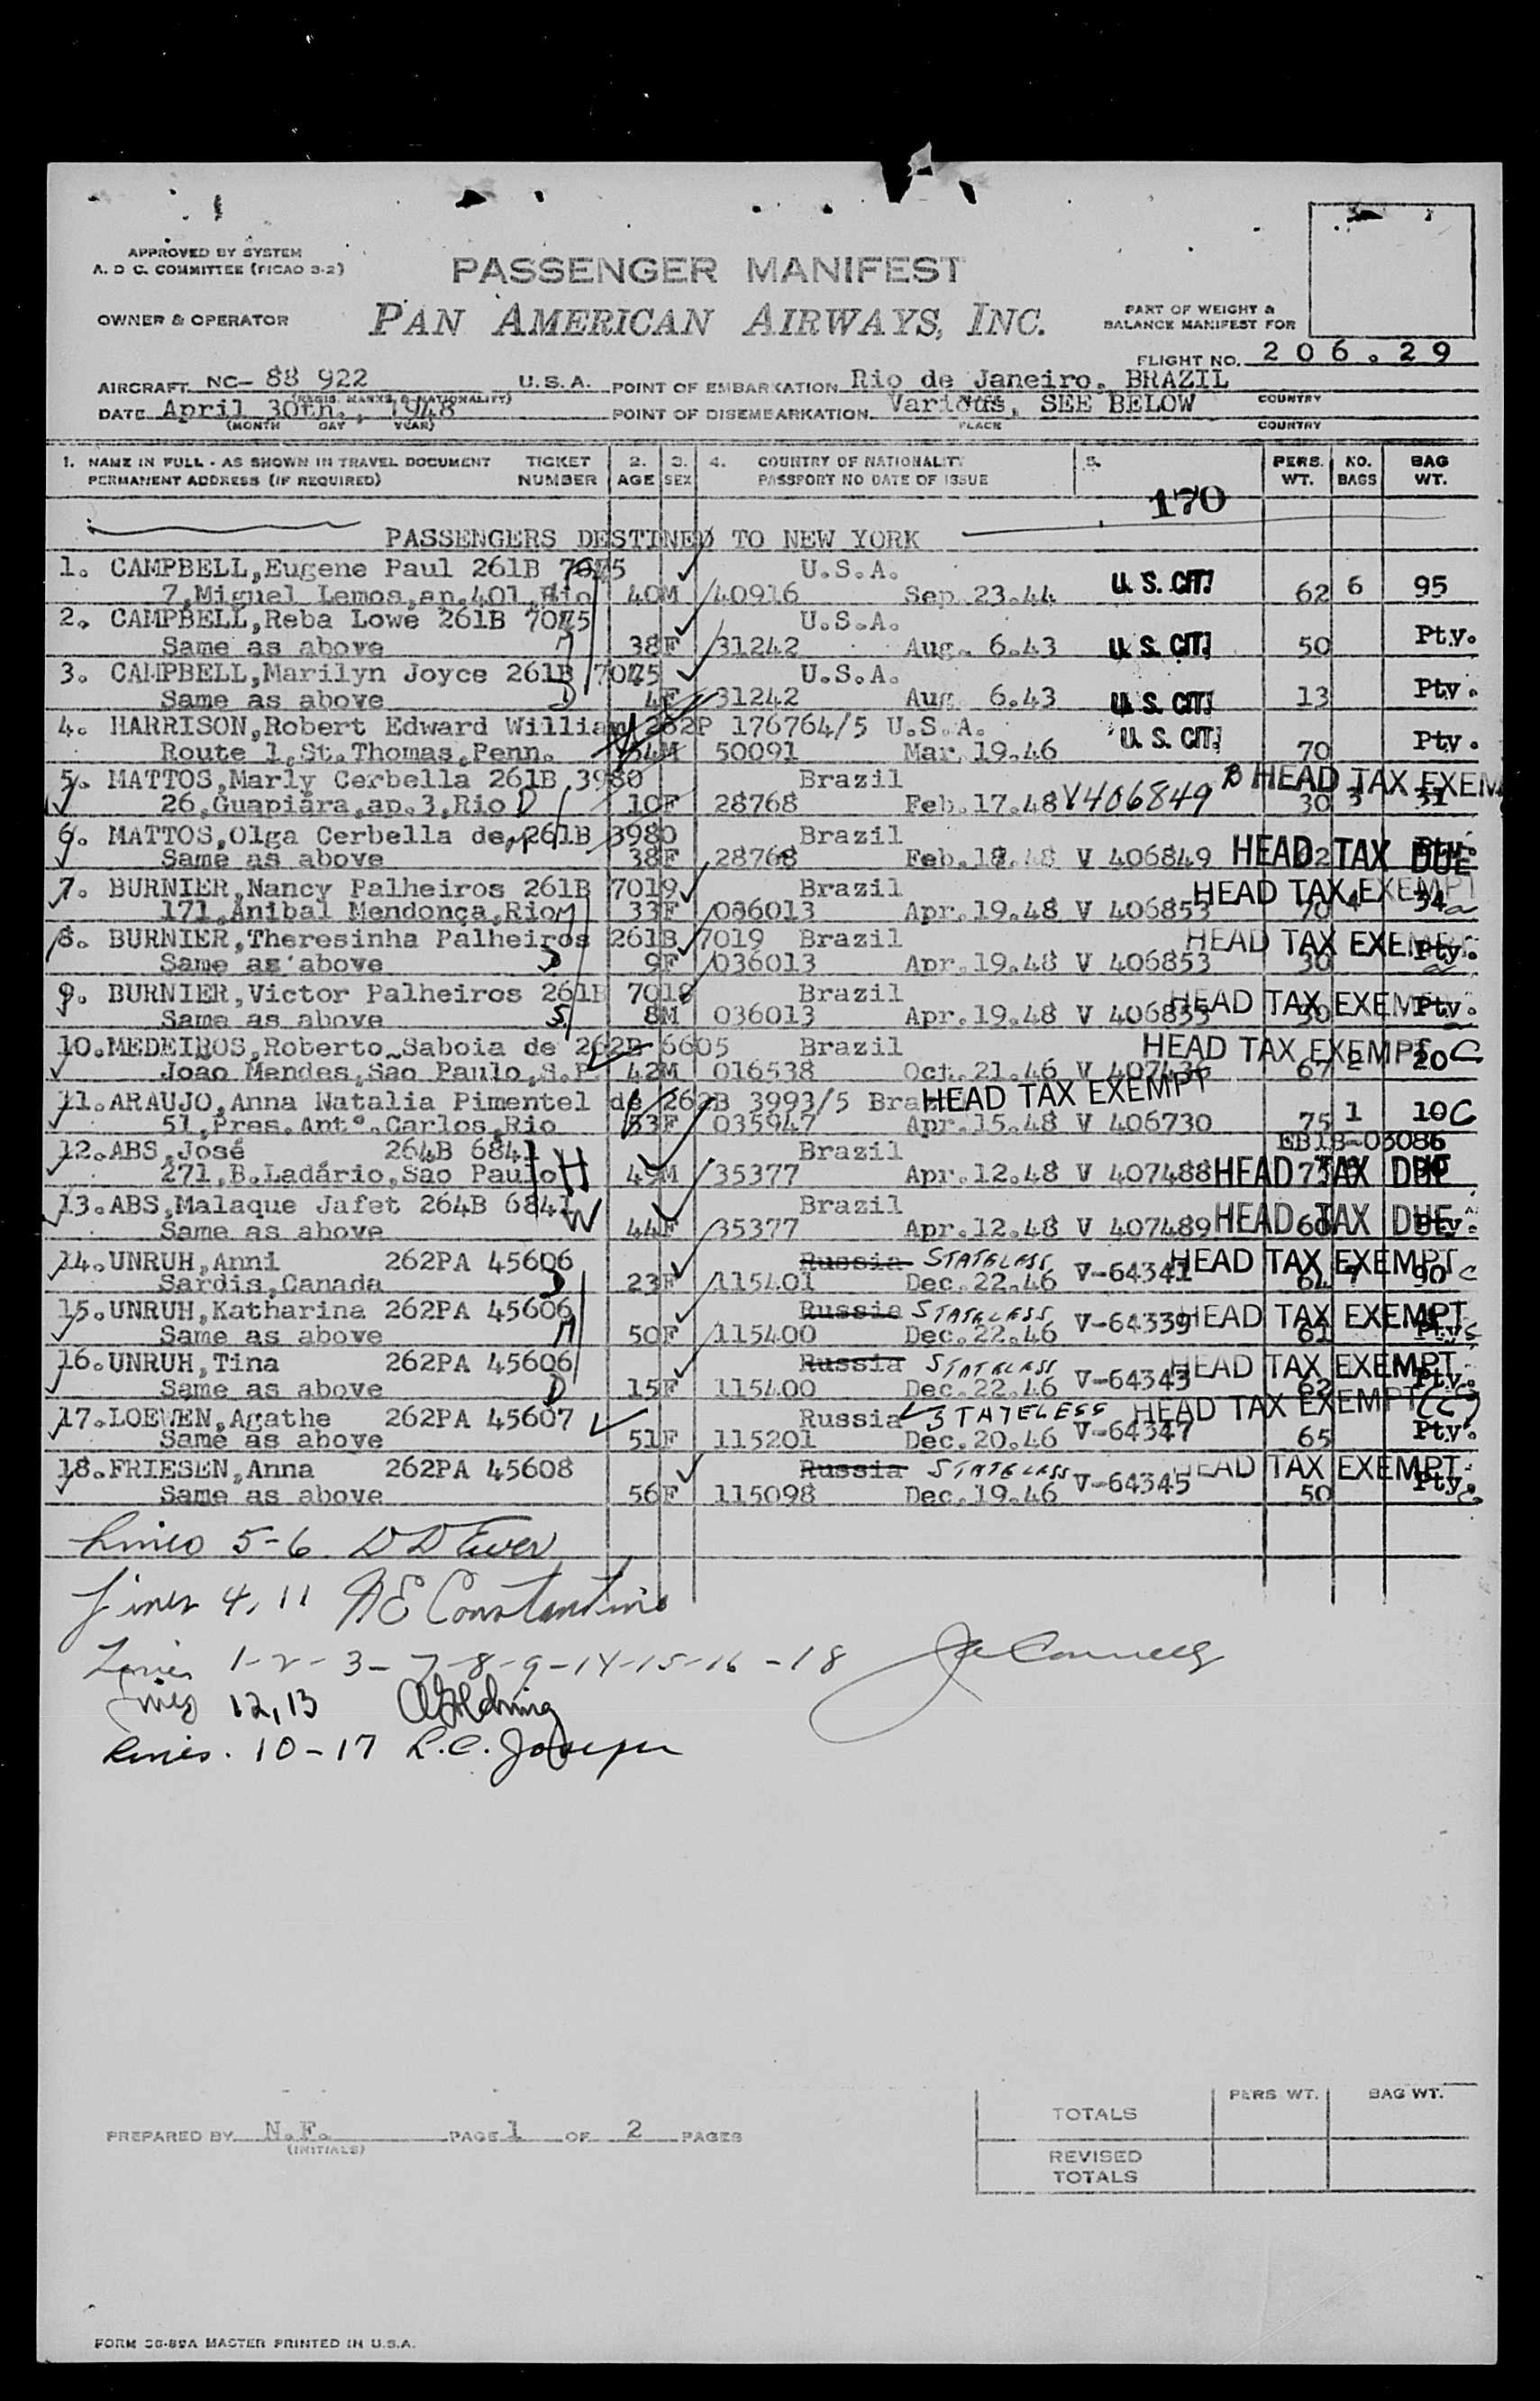 APPROVED BY SYSTEM
A. D C. COMMITTEE (PICAO 3-2)
PASSENGER MANIFEST
OWNER & OPERATOR
PAN AMERICAN AIRWAYS, INC.
PART OF WEIGHT &
BALANCE MANIFEST FOR
FLIGHT NO. 206.29
AIRCRAFT NC- 88 922 U.S.A. POINT OF EMBARKATION Rio de Janeiro. BRAZIL
(REGIS. MARKS & NATIONALITY) COUNTRY
DATE April 30th., 1948 POINT OF DISEMBARKATION Various, SEE BELOW
(MONTH DAY YEAR) PLACE COUNTRY
1. NAME IN FULL - AS SHOWN IN TRAVEL DOCUMENT TICKET 2. 3. 4. COUNTRY OF NATIONALITY 5. PERS. NO. BAG
PERMANENT ADDRESS (IF REQUIRED) NUMBER AGE SEX PASSPORT NO DATE OF ISSUE WT. BAGS WT.
170
PASSENGERS DESTINED TO NEW YORK
1. CAMPBELL,Eugene Paul 261B 7075 U.S.A.
7,Miguel Lemos,ap.401,Rio 40M 40916 Sep.23.44 U.S. CIT. 62 6 95
2. CAMPBELL,Reba Lowe 261B 7075 U.S.A.
Same as above M 38F 31242 Aug. 6.43 U.S. CIT. 50 Pty.
3. CAMPBELL,Marilyn Joyce 261B 7075 U.S.A.
Same as above D 4F 31242 Aug. 6.43 U.S. CIT. 13 Pty.
4. HARRISON,Robert Edward William 262P 176764/5 U.S.A.
Route 1,St.Thomas,Penn. 54M 50091 Mar.19.46 U.S. CIT. 70 Pty.
5. MATTOS,Marly Cerbella 261B 3980 Brazil HEAD TAX EXEM
26,Guapiára,ap.3,Rio D 10F 28768 Feb.17.48 V406849 30 3 31
6. MATTOS,Olga Cerbella de 261B 3980 Brazil
Same as above 38F 28768 Feb.18.48 V 406849 HEAD TAX DUE Pty.
7. BURNIER,Nancy Palheiros 261B 7019 Brazil HEAD TAX EXEMPT
171,Anibal Mendonça,Rio M 33F 036013 Apr.19.48 V 406853 70 4 54
8. BURNIER,Theresinha Palheiros 261B 7019 Brazil HEAD TAX EXEMPT
Same as above D 9F 036013 Apr.19.48 V 406853 30 Pty.
9. BURNIER,Victor Palheiros 261B 7019 Brazil HEAD TAX EXEMPT
Same as above S 8M 036013 Apr.19.48 V 406853 30 Pty.
10.MEDEIROS,Roberto Saboia de 262B 6605 Brazil HEAD TAX EXEMPT
Joao Mendes,Sao Paulo,S.P. 42M 016538 Oct.21.46 V 407436 67 2 20 C
11.ARAUJO,Anna Natalia Pimentel de 262B 3993/5 Bra HEAD TAX EXEMPT
51,Pres.Antº.Carlos,Rio 53F 035947 Apr.15.48 V 406730 75 1 10C
12.ABS,José 264B 6841 Brazil EBIB-03086
271,B.Ladário,Sao Paulo H 49M 35377 Apr.12.48 V 407488 HEAD TAX DUE 73
13.ABS,Malaque Jafet 264B 6841 W Brazil
Same as above 44F 35377 Apr.12.48 V 407489 HEAD TAX DUE 60 Pty.
14.UNRUH,Anni 262PA 45606 Russia STATELESS HEAD TAX EXEMPT
Sardis,Canada D 23F 115401 Dec.22.46 V-64341 64 7 90 C
15.UNRUH,Katharina 262PA 45606 Russia STATELESS HEAD TAX EXEMPT
Same as above M 50F 115400 Dec.22.46 V-64339 61 Pty.
16.UNRUH,Tina 262PA 45606 Russia STATELESS HEAD TAX EXEMPT
Same as above D 15F 115400 Dec.22.46 V-64343 62 Pty.
17.LOEWEN,Agathe 262PA 45607 Russia STATELESS HEAD TAX EXEMPT (C)
Same as above 51F 115201 Dec.20.46 V-64347 65 Pty.
18.FRIESEN,Anna 262PA 45608 Russia STATELESS HEAD TAX EXEMPT
Same as above 56F 115098 Dec.19.46 V-64345 50 Pty.
Lines 5-6
Lines 4, 11 Constantine
Lines 1-2-3-7-8-9-14-15-16-18
Lines 12,13
Lines. 10-17 R.C. Joseph
TOTALS PERS WT. BAG WT.
PREPARED BY N.F. PAGE 1 OF 2 PAGES
(INITIALS)
REVISED
TOTALS
FORM 36-89A MASTER PRINTED IN U.S.A.